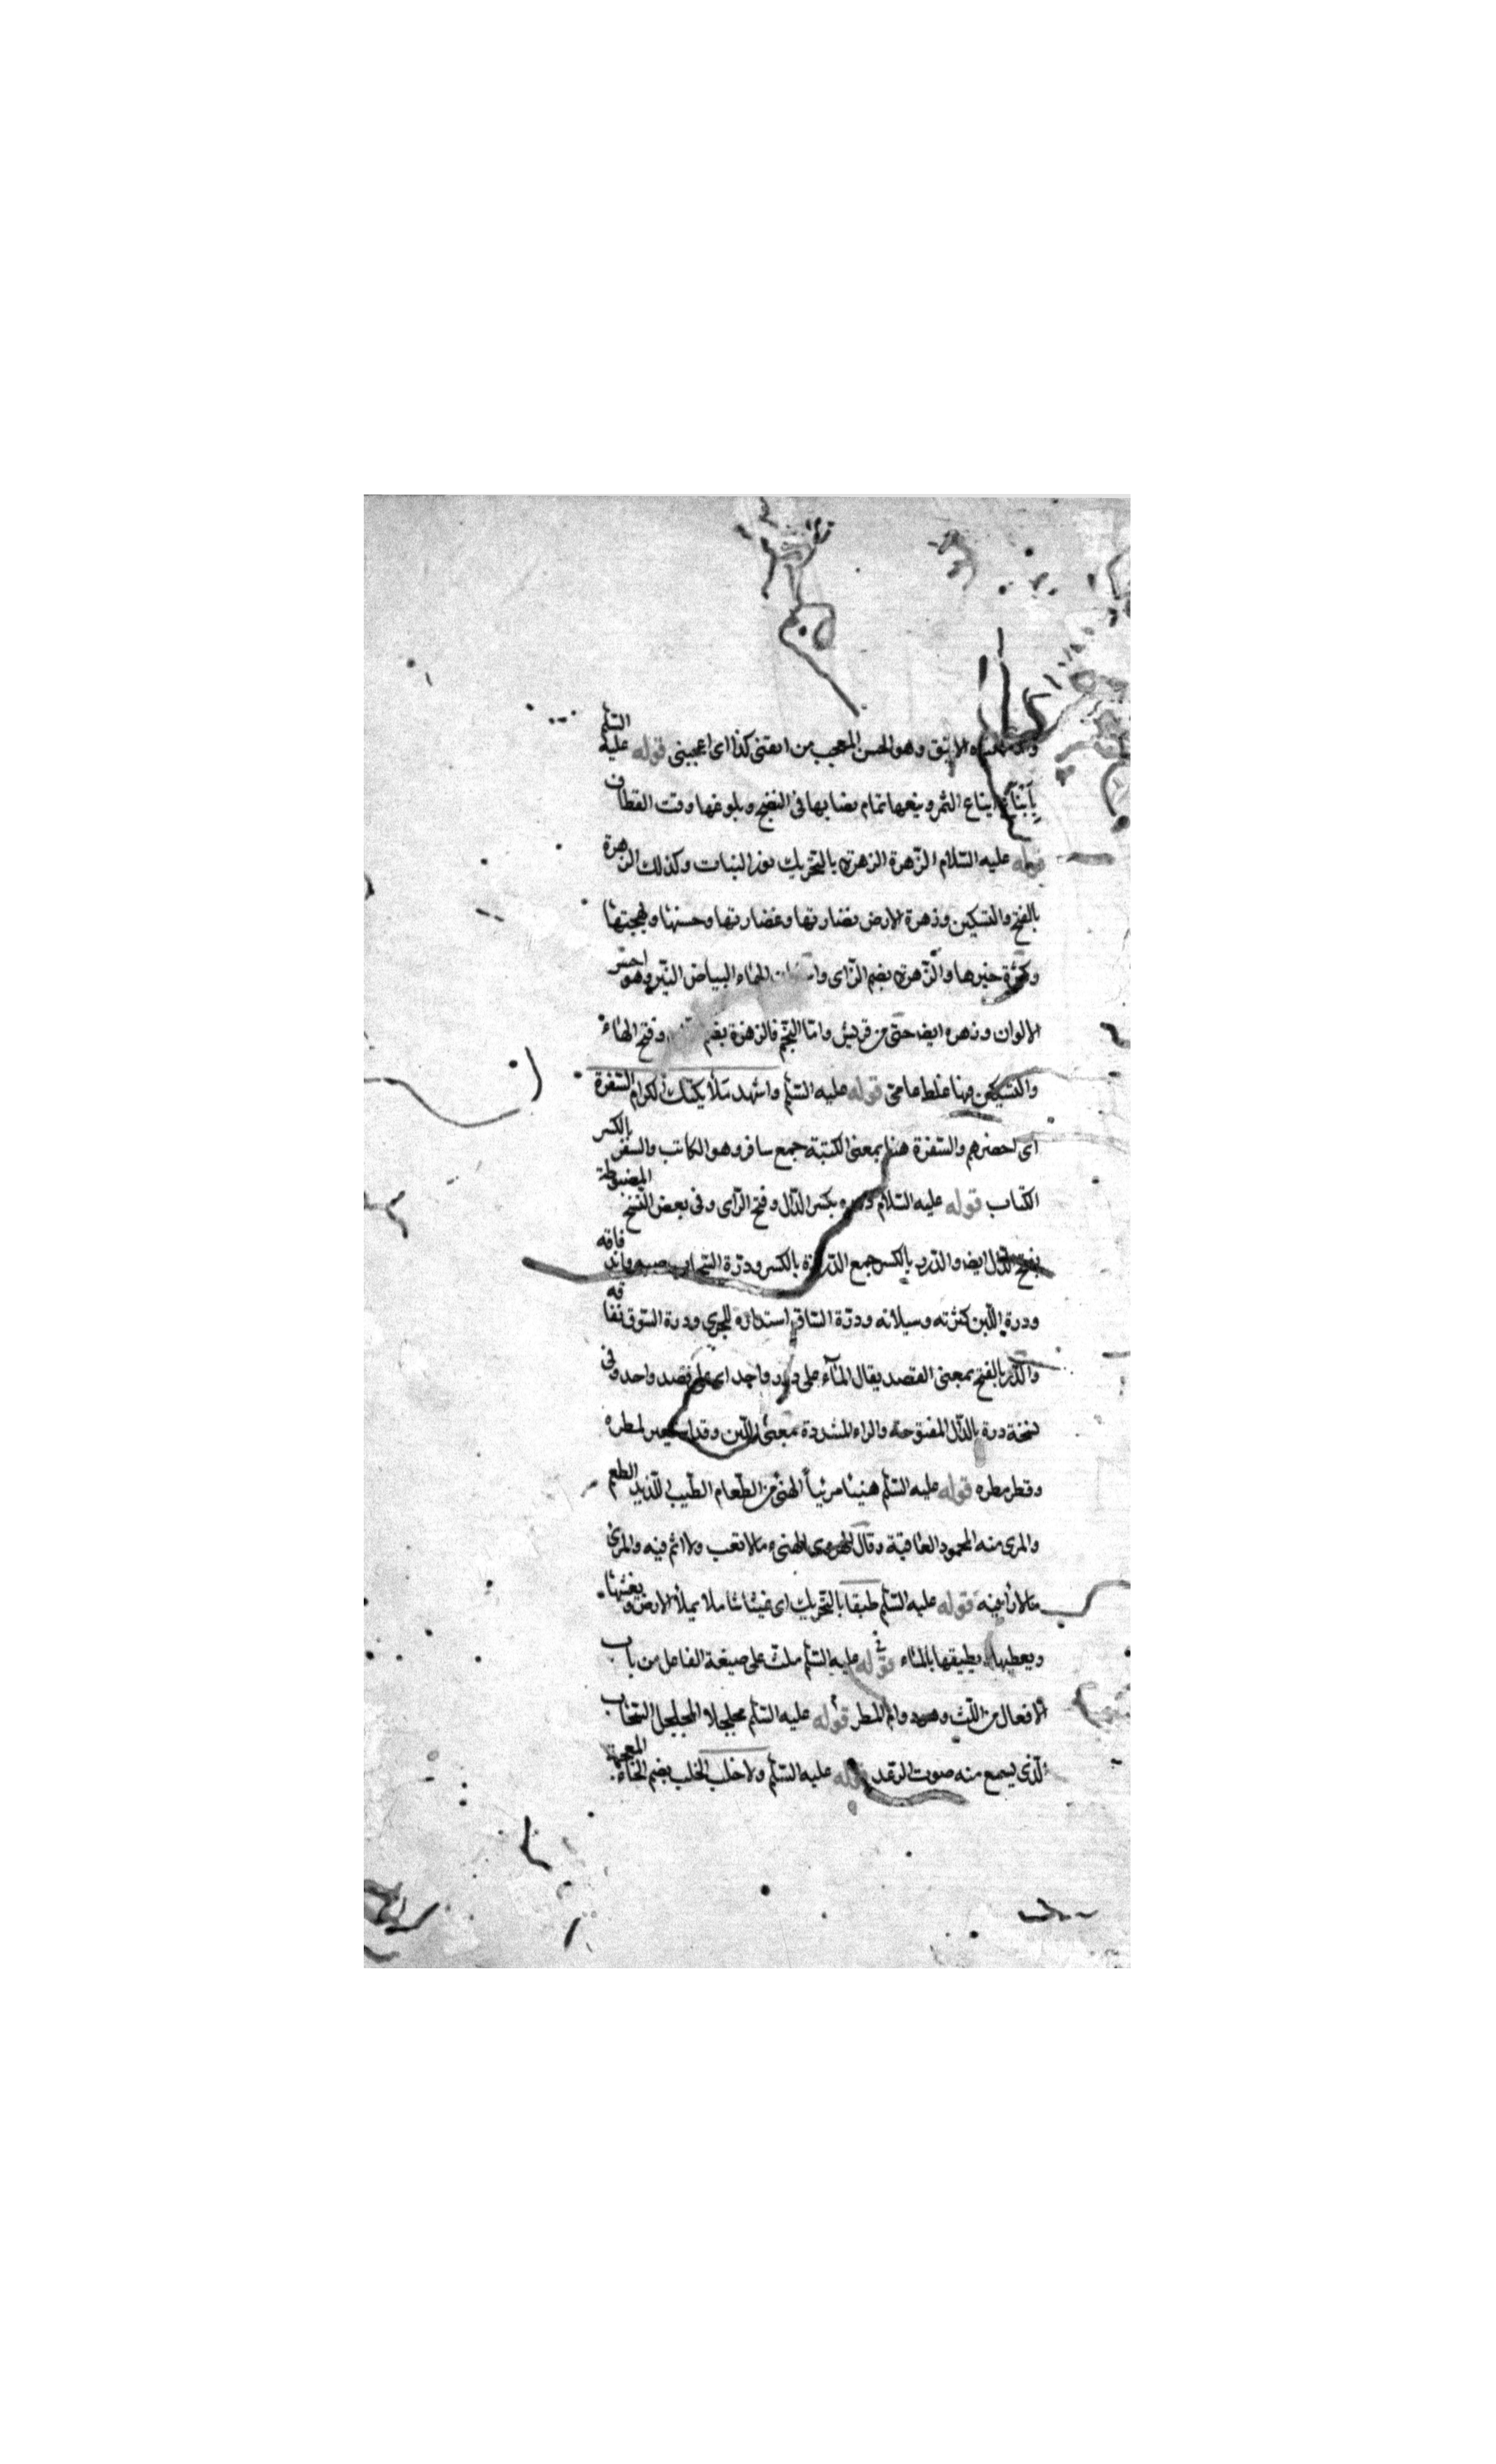 وهو الحسن المعجب من انقنى كذا اى اعجبنى قوله عليه السلم
ايناع الثمر وينعها تمام نصابها فى النضج وبلوغها وقت القطاف
قوله عليه السّلام الزهرة الزهرة بالتحريك نور النبات وكذلك الزهرة
بالفتح والتسكين وزهرة الارض نضارتها وغضارتها وحسنها وبهجتها
وكثرة خيرها والزّهرة بضم الزّاى الهاء البياض النيّر وهو احسن
الالوان وزهره ايضا حىّ من قريش وامّا النجم فالزهرة بضم وفتح الهاء
والتسكين فيها غلط عامى قوله عليه السّلم واشهد ملائكتك الكرام السّفرة
اى احضرهم والسّفرة هنا بمعنى الكتبة جمع سافر وهو الكاتب والسفر بالكسر
الكتاب قوله عليه السّلام درره بكسر الدّال وفتح الرّاى وفى بعض النّسخ المضبوطة
بفتح الدّال ايضا والدّرر بالكسر جمع الدّرّة بالكسر ودرّة السّحاب صبه واندفاقه
ودرة اللّبن كثرته وسيلانه ودرّة السّاق استدراره للجرى ودرة السّوق نفاقه
والدّرر بالفتح بمعنى القصد يقال المنآء على درر واحد اى على قصد واحد وفى
نسخة درة بالدّال المفتوحة والراء المشددة بمعنى اللّبن وقد استعير لمطره
وقطر مطره قوله عليه السّلم هنيئا مريئاً الهنئ من الطّعام الطّيب اللّذيذ الطعم
والمرى منه المحمود العاقبة وقال الهروى الهنىء مالا تعب ولا اثم فيه والمرئ
مالا داء فيه قوله عليه السّلم طبقا بالتّحريك اى غيثا شاملا يملأ الارض ويغشيها
ويعطيها ويطبقها بالماء قوله عليه السّلم ملث على صيغة الفاعل من باب
الافعال من اللّث وهو دوام المطر قوله عليه السّلم مجلجلا المجلجل السّحاب
الّذى يسمع منه صوت الرّعد قوله عليه السّلم ولا خلب الخلب بضم الخاء المعجمة